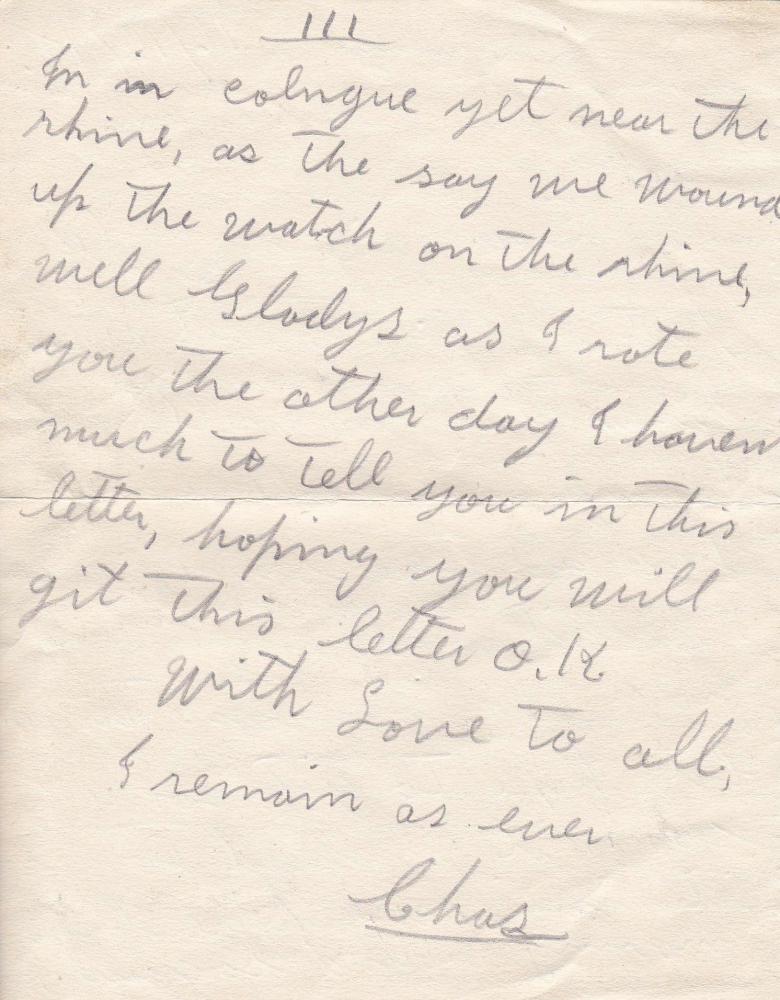 III
Im in colngue yet near the
rhine, as the say we wound
up the watch on the rhine,
well Gladys as I rote
you the other day I haven
much to tell you in this
letter, hoping you will
git this letter O.K
With Love to all,
I remain as ever
Chas